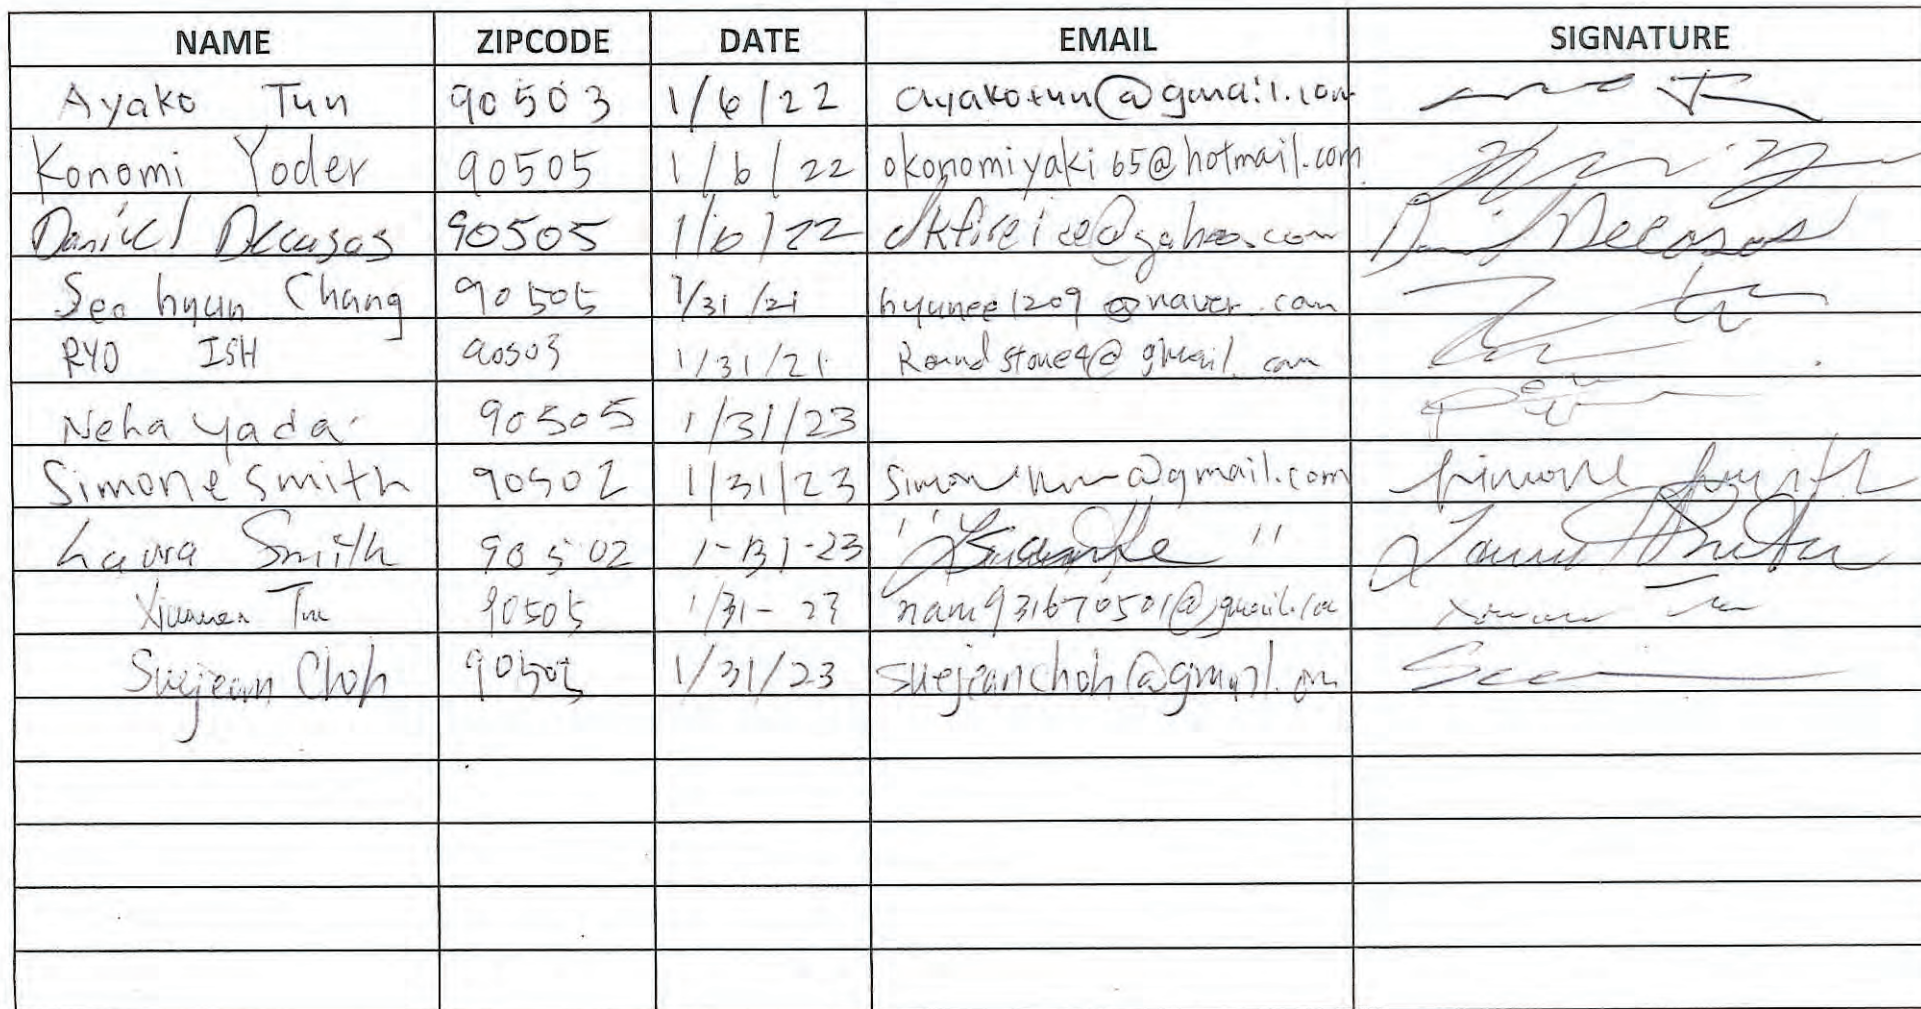 NAME ZIPCODE DATE EMAIL SIGNATURE
Ayako Tun 90503 1/6/22 ayakotun@gmail.com
Konomi Yoder 90505 1/6/22 okonomiyaki65@hotmail.com
Daniel Decasas 90505 1/6/22 dkfireice@yahoo.com Daniel Decasas
Seo hyun Chang 90505 1/31/21 hyunee1209@naver.com
RYO ISH 90503 1/31/21 Roundstone4@gmail.com
Neha Yada 90505 1/31/23
Simone Smith 90502 1/31/23 @gmail.com Simone Smith
Laura Smith 90502 1-31-23 " "
90505 1/31-23 nam931670501@gmail.co
Suejean Choh 90505 1/31/23 suejeanchoh@gmail.om